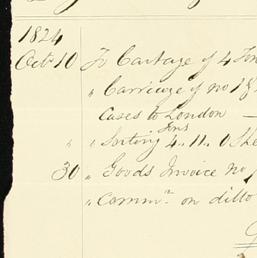 1824
Octr 10 To Cartage of 4 Ton
" Carriage of no 1 &
Cases to London —
" " Sorting 4 Tons . 11 . 0 She
30 " Goods Invoice no
" Commn on ditto